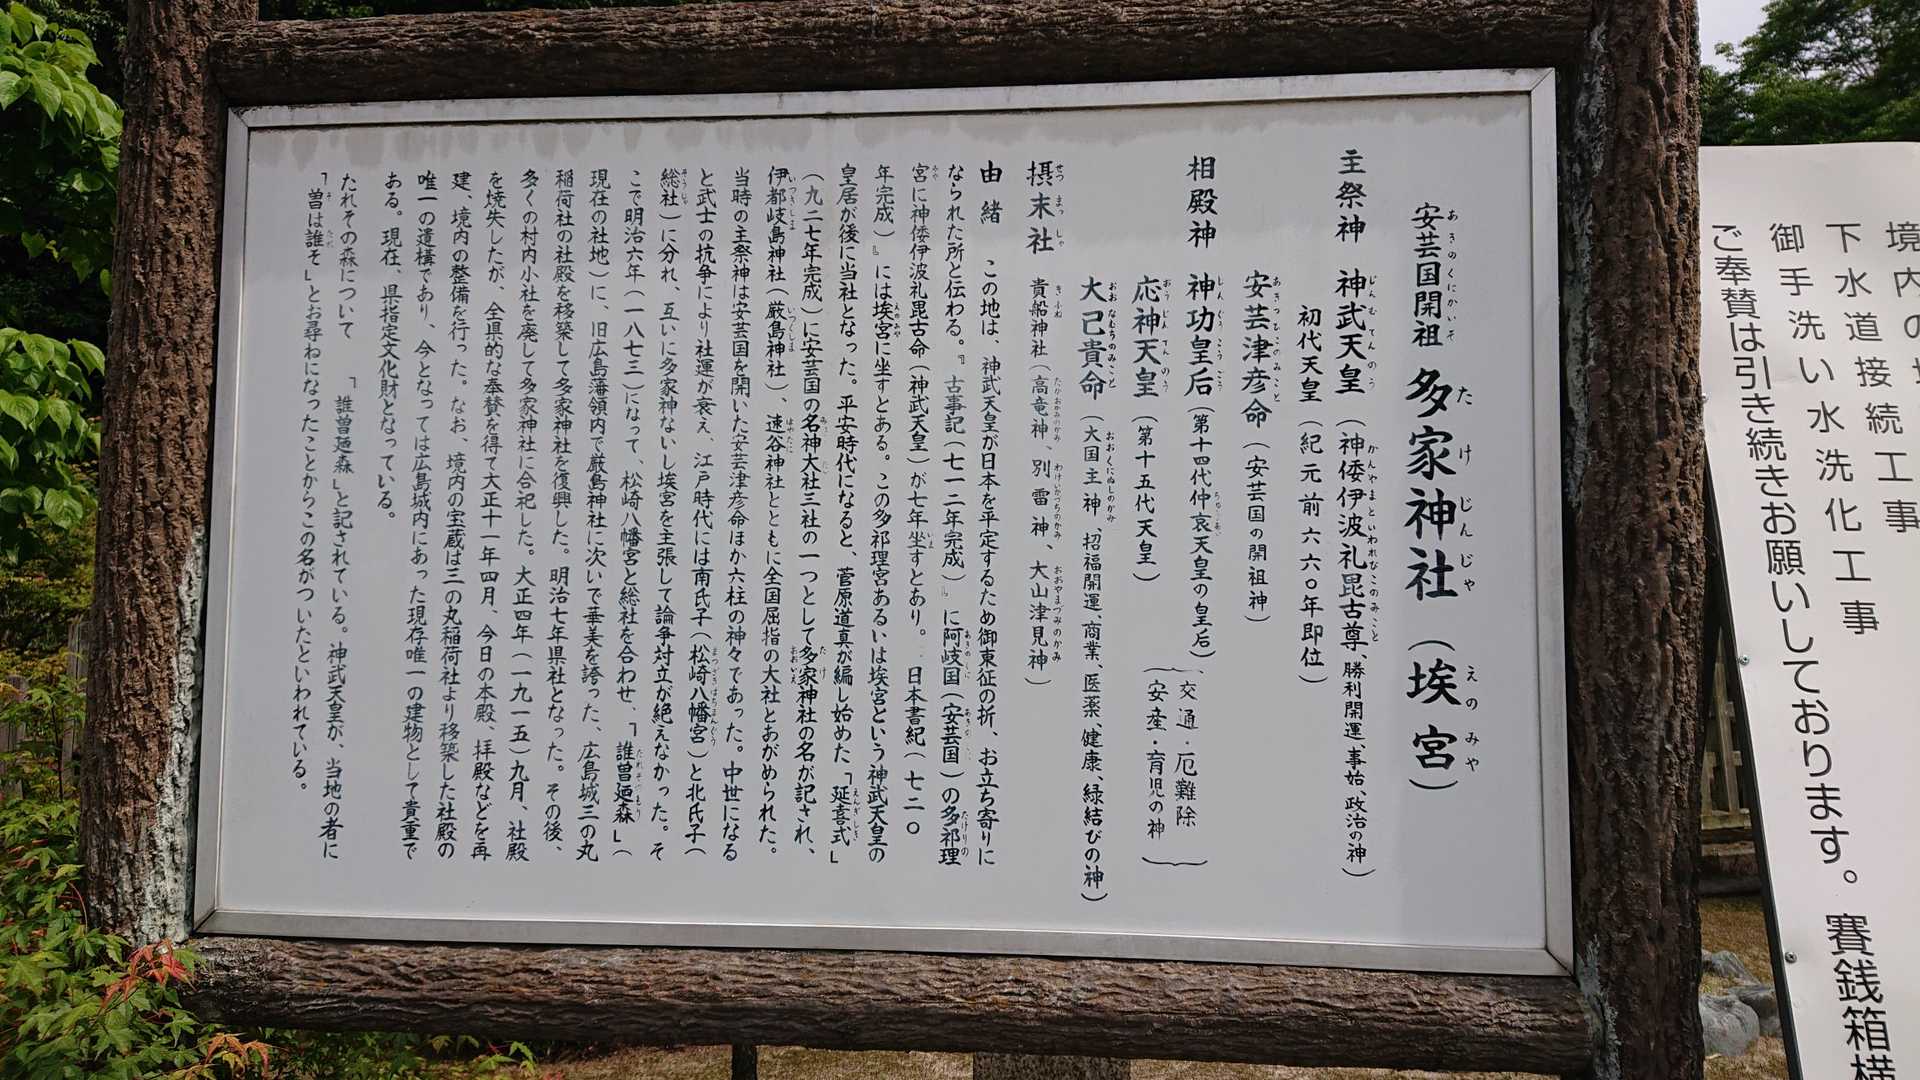 安芸国開祖 多家神社（埃宮）
主祭神 神武天皇（神倭伊波礼毘古尊、勝利開運、事始、政治の神）
初代天皇（紀元前六六〇年即位）
安芸津彦命（安芸国の開祖神）
相殿神 神功皇后（第十四代仲哀天皇の皇后）
応神天皇（第十五代天皇）
（交通・厄難除
安産・育児の神）
大己貴命（大国主神、招福開運、商業、医薬、健康、縁結びの神）
摂末社 貴船神社（高竜神、別雷神、大山津見神）
由緒 この地は、神武天皇が日本を平定するため御東征の折、お立ち寄りに
なられた所と伝わる。『古事記（七一二年完成）』に阿岐国（安芸国）の多祁理
宮に神倭伊波礼毘古命（神武天皇）が七年坐すとあり。日本書紀（七二〇
年完成）』には埃宮に坐すとある。この多祁理宮あるいは埃宮という神武天皇の
皇居が後に当社となった。平安時代になると、菅原道真が編し始めた「延喜式」
（九二七年完成）に安芸国の名神大社三社の一つとして多家神社の名が記され、
伊都岐島神社（厳島神社）、速谷神社とともに全国屈指の大社とあがめられた。
当時の主祭神は安芸国を開いた安芸津彦命ほか六柱の神々であった。中世になる
と武士の抗争により社運が衰え、江戸時代には南氏子（松崎八幡宮）と北氏子（
総社）に分れ、互いに多家神ないし埃宮を主張して論争対立が絶えなかった。そ
こで明治六年（一八七三）になって、松崎八幡宮と総社を合わせ、「誰曽廼森」（
現在の社地）に、旧広島藩領内で厳島神社に次いで華美を誇った、広島城三の丸
稲荷社の社殿を移築して多家神社を復興した。明治七年県社となった。その後、
多くの村内小社を廃して多家神社に合祀した。大正四年（一九一五）九月、社殿
を焼失したが、全県的な奉賛を得て大正十一年四月、今日の本殿、拝殿などを再
建、境内の整備を行った。なお、境内の宝蔵は三の丸稲荷社より移築した社殿の
唯一の遺構であり、今となっては広島城内にあった現存唯一の建物として貴重で
ある。現在、県指定文化財となっている。
たれその森について 「誰曽廼森」と記されている。神武天皇が、当地の者に
「曽は誰そ」とお尋ねになったことからこの名がついたといわれている。
下水道接続工事
御手洗い水洗化工事
ご奉賛は引き続きお願いしております。賽銭箱横